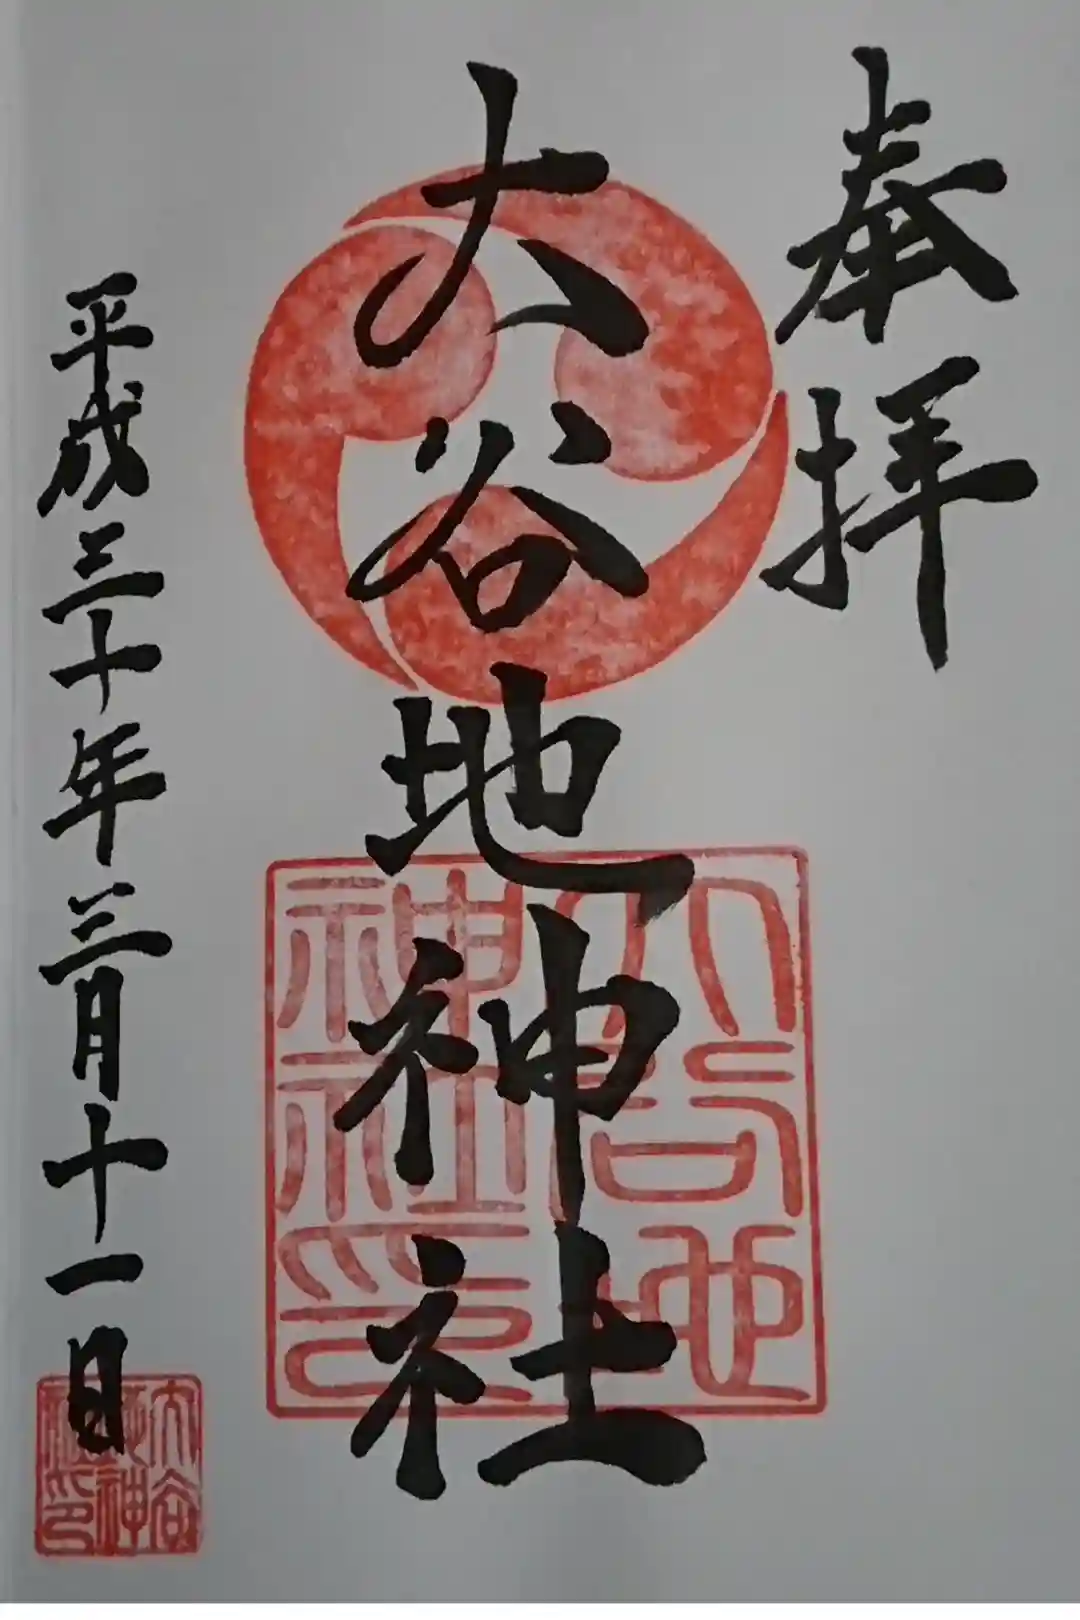 奉拝
大谷地神社
平成三十年三月十一日
大谷地神社印
大谷地神社印